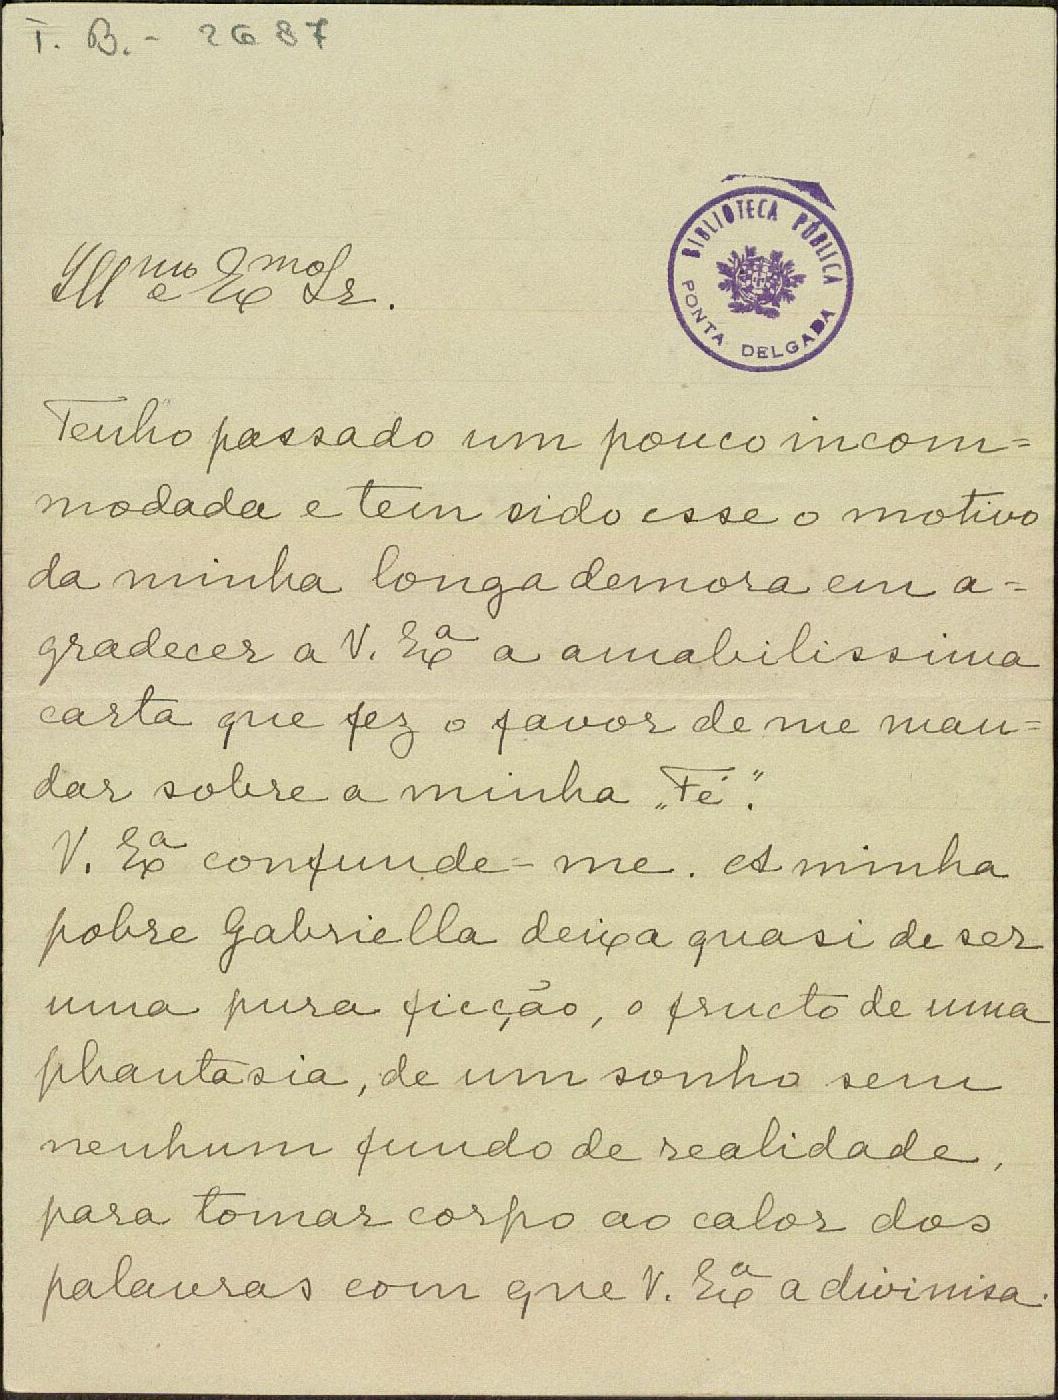 T. B. - 2687
BIBLIOTECA PÚBLICA
PONTA DELGADA
Illmo e Exmo Sr.
Tenho passado um pouco incom=
modada e tem sido esse o motivo
da minha longa demora em a=
gradecer a V. Exa a amabilissima
carta que fez o favor de me man=
dar sobre a minha „Fé".
V. Exa confunde-me. A minha
pobre Gabriella deixa quasi de ser
uma pura ficção, o fructo de uma
phantasia, de um sonho sem
nenhum fundo de realidade,
para tomar corpo ao calor das
palavras com que V. Exa a divinisa.